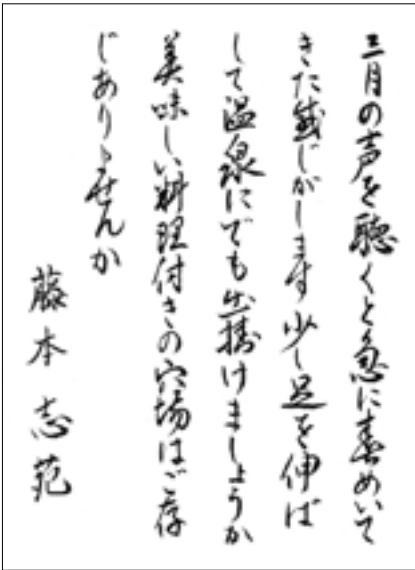 三月の声を聴くと急に春めいて
きた感じがします少し足を伸ば
して温泉にでも出掛けましょうか
美味しい料理付きの穴場はご存
じありませんか
藤本志苑